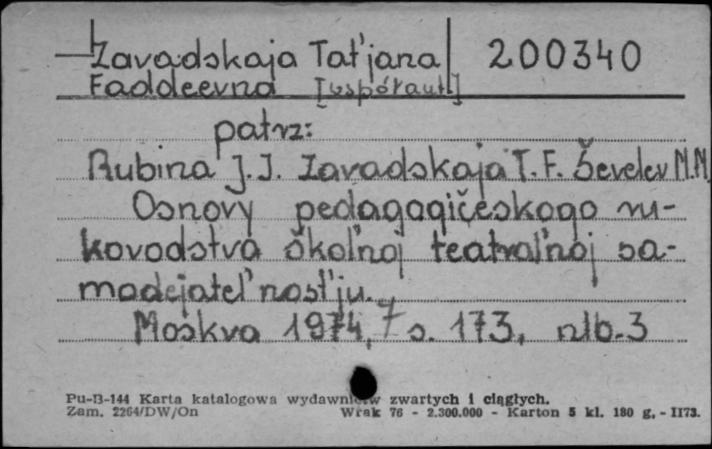 Zavadskaja Tat'jana 200340
Faddeevna [współaut.]
patrz:
Rubina J.I. Zavadskaja T.F. Ševelev N.N.
Osnovy pedagogičeskogo ru-
kovodstva škol'noj teatral'noj sa-
modejatel'nost'ju.
Moskva 1974, s. 173, nlb. 3
Pu-B-144 Karta katalogowa wydawnictw zwartych i ciągłych.
Zam. 2264/DW/On WZak 76 - 2.300.000 - Karton 5 kl. 180 g. - II73.